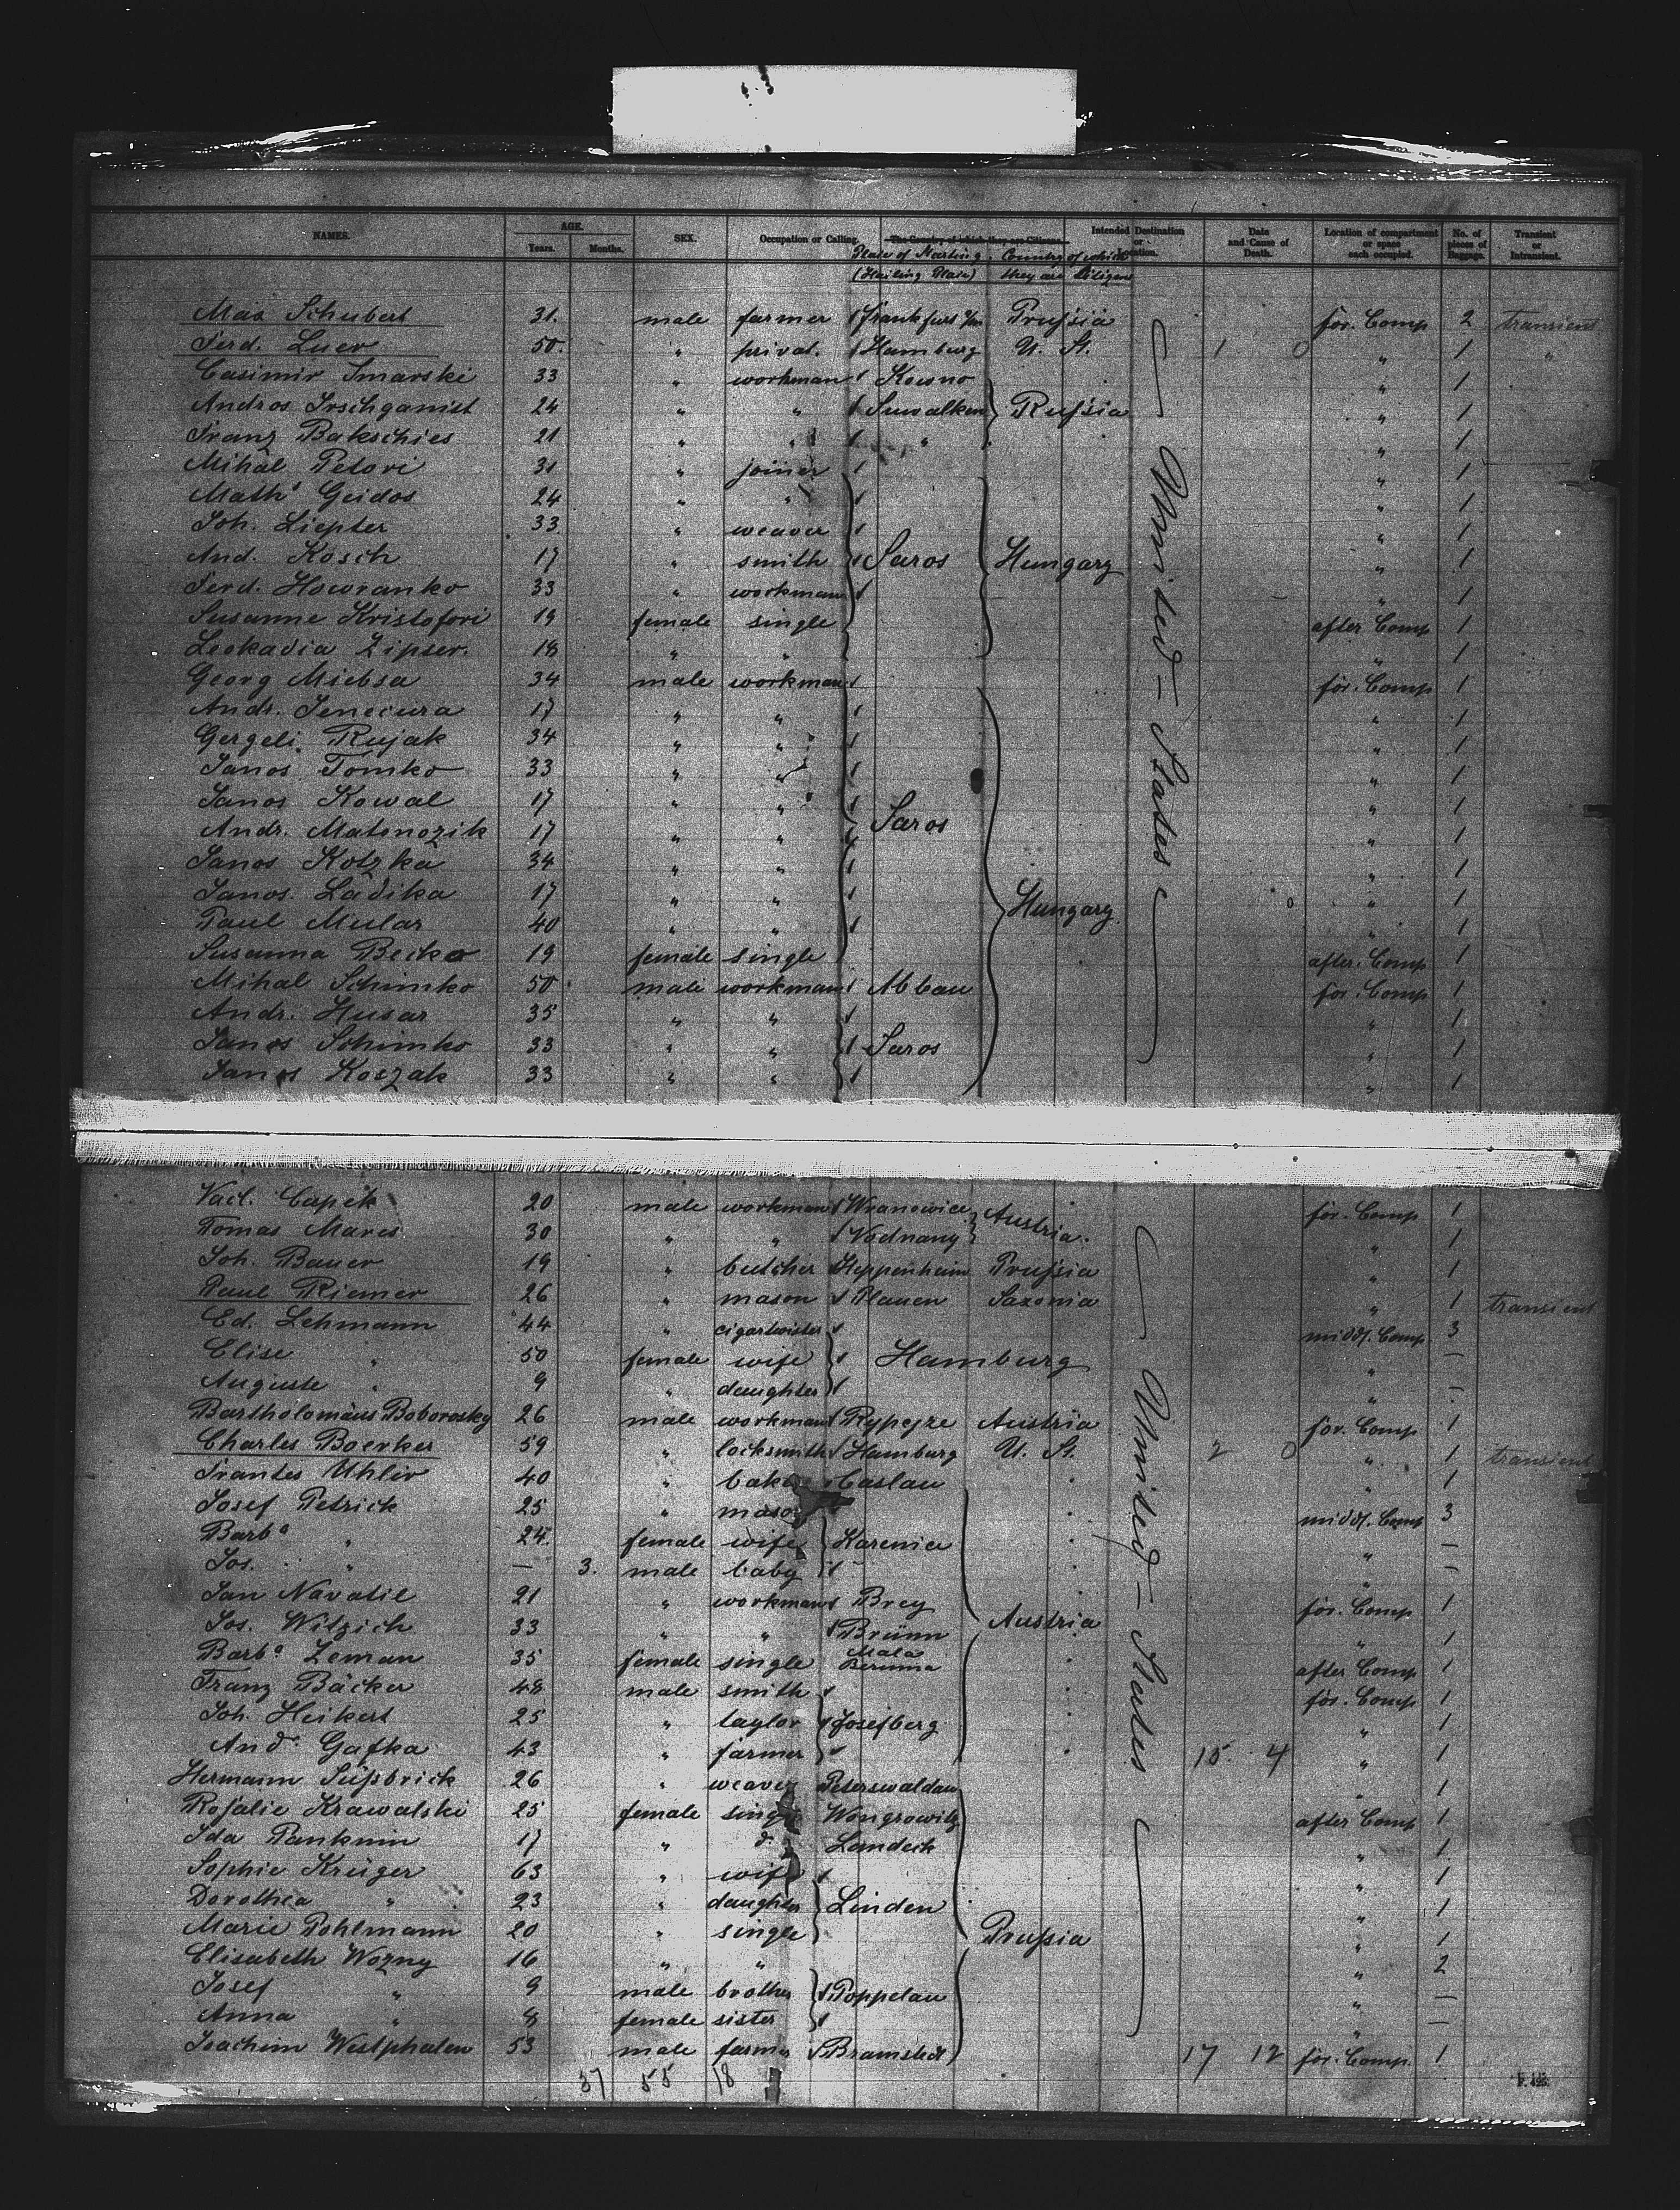 NAMES. AGE. SEX. Occupation or Calling. The Country of which they are Citizens. Intended Destination or Location. Date and Cause of Death. Location of compartment or space each occupied. No. of pieces of Baggage. Transient or Intransient.
Years. Months.
Place of Starting (Hailing Place) Country of which they are Citizens
Max Schubert 31. male farmer Frankfurt a/m Prussia for. Comp 2 transient
Ferd. Luer 50. " privat. Hamburg U. St. 1 0 " 1 "
Casimir Smarski 33 " workman Kowno " 1
Andros Irschganist 24 " " Suwalken Russia " 1
Franz Bakschies 21 " " " " 1
Mihal Petori 31 " joiner " 1
Math. Geidos 24 " " " 1
Joh. Liepter 33 " weaver " 1
And. Kosch 17 " smith Saros Hungary " 1
Ferd. Howranko 33 " workman " 1
Susanne Kristofori 19 female single after Comp 1
Leokadia Zipser. 18 " " " 1
Georg Miebsa 34 male workman for. Comp 1
Andr. Jenecura 17 " " " 1
Gergeli Rujak 34 " " " 1
Janos Tomko 33 " " " 1
Janos Kowal 17 " " " 1
Andr. Matonozik 17 " " Saros " 1
Janos Kotzka 34 " " " 1
Janos Ladika 17 " " 0 " 1
Paul Mular 40 " " Hungary. " 1
Susanna Becko 19 female single after. Comp 1
Mihal Schimko 50 male workman Abbau for. Comp 1
Andr. Husar 35 " " " 1
Janos Schimko 33 " " Saros " 1
Janos Koszak 33 " " " 1
United-States
Vacl. Capek 20 male workman Wranowice Austria. for. Comp 1
Tomas Mares 30 " " Vodnany " 1
Joh. Bauer 19 " butcher Heppenheim Prussia " 1
Paul Riemer 26 " mason Plauen Saxonia " 1 transient
Ed. Lehmann 44 " cigartwister middl. Comp 3
Elise " 50 female wife Hamburg " —
Auguste " 9 " daughter " —
Bartholomäus Boborosky 26 male workman Rypejze Austria for. Comp 1
Charles Boerker 59 " locksmith Hamburg U. St. 2 0 " 1 transient
Frantes Uhlir 40 " Caslau " 1
Josef Petrick 25 " mason middl. Comp 3
Barb. " 24. female wife Karenice " —
Jos. " — 3. male baby " —
Jan Navatil 21 " workman Brey for. Comp 1
Jos. Witzich 33 " " Brünn Austria " 1
Barb. Zeman 35 female single Mala Berunna after Comp 1
Franz Bäcker 48 male smith for. Comp 1
Joh. Heikert 25 " taylor Josefberg " 1
And. Gafka 43 " farmer 15. 4 " 1
Hermann Süssbrick 26 " weaver Peterswaldau " 1
Rosalie Krawalski 25 female Wongrowitz after Comp 1
Ida Panknin 17 " d. Landeck " 1
Sophie Krüger 63 " wife " 1
Dorothea " 23 " daughter Linden " 1
Marie Pohlmann 20 " single Prussia " 1
Elisabeth Wozny 16 " " " 2
Josef " 9 male brother Poppelau " —
Anna " 8 female sister " —
Joachim Westphalen 53 male farmer Bramstedt 17 12 for. Comp. 1
United-States
37 55 18